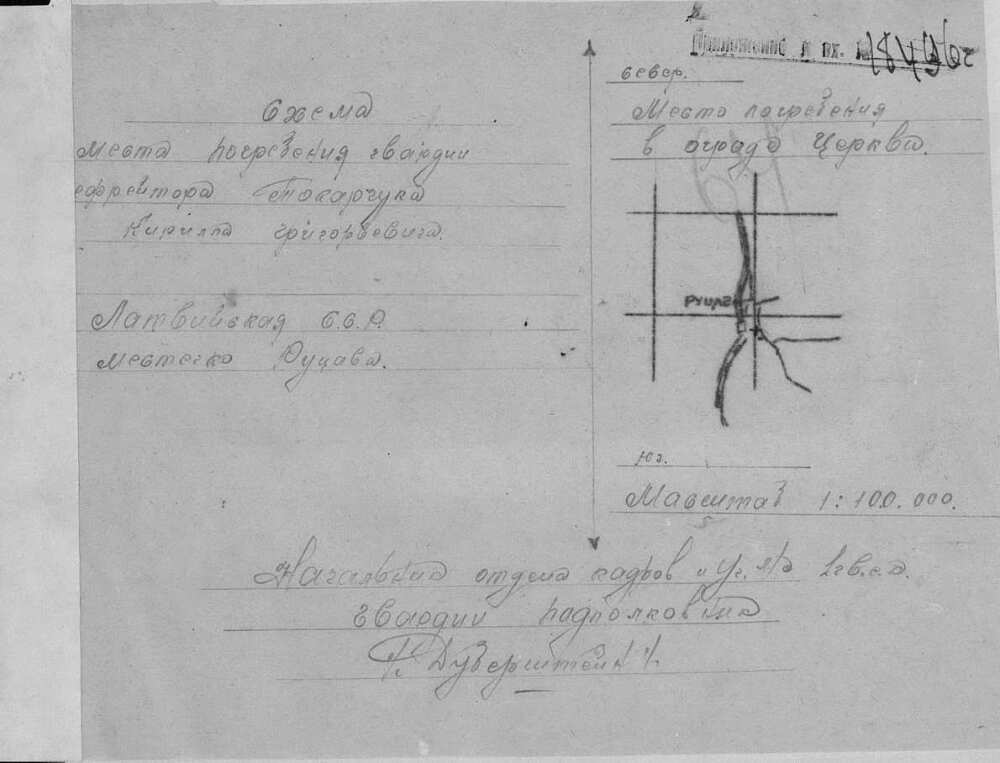 Приложение к вх. № 18496с
Схема
места погребения гвардии
ефрейтора Токарчука
Кирилла Григорьевича.
Латвийская С.С.Р.
местечко Руцава.
север.
Место погребения
в ограде Церква.
РУЦАВА
юг.
Масштаб 1:100.000.
Начальник отдела кадров и уч. 
гвардии подполковник
/Дуберштейн/.